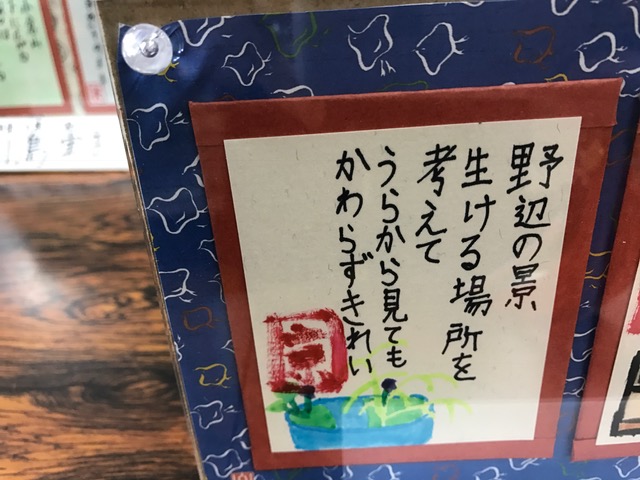 野辺の景
生ける場所を
考えて
うらから見ても
かわらずきれい